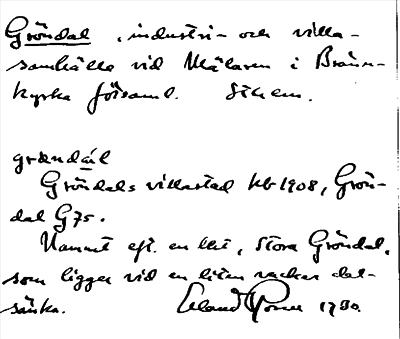 Gröndal, industri- och villa-
samhälle vid Mälaren i Bränn-
kyrka församl. Sthlm.
grøndál
Gröndals villastad hb 1908, Grön-
dal G75.
Namnet eft. en lht, Stora Gröndal,
som ligger vid en liten vacker dal-
sänka. Erland 1930.